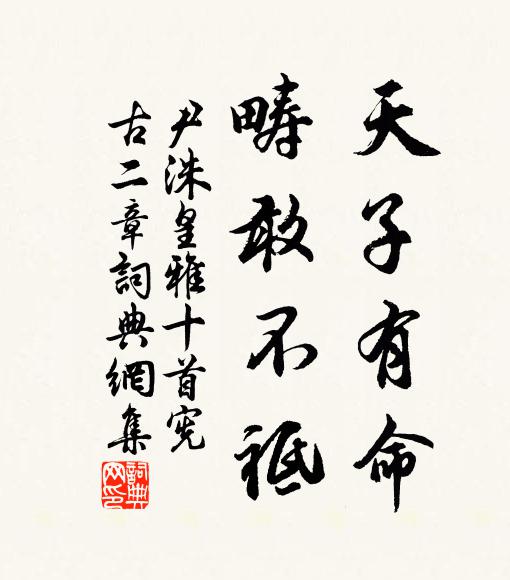 天子有命
畴敢不祗
尹洙皇雅十首宪
古二章詞典網集
詞典网印